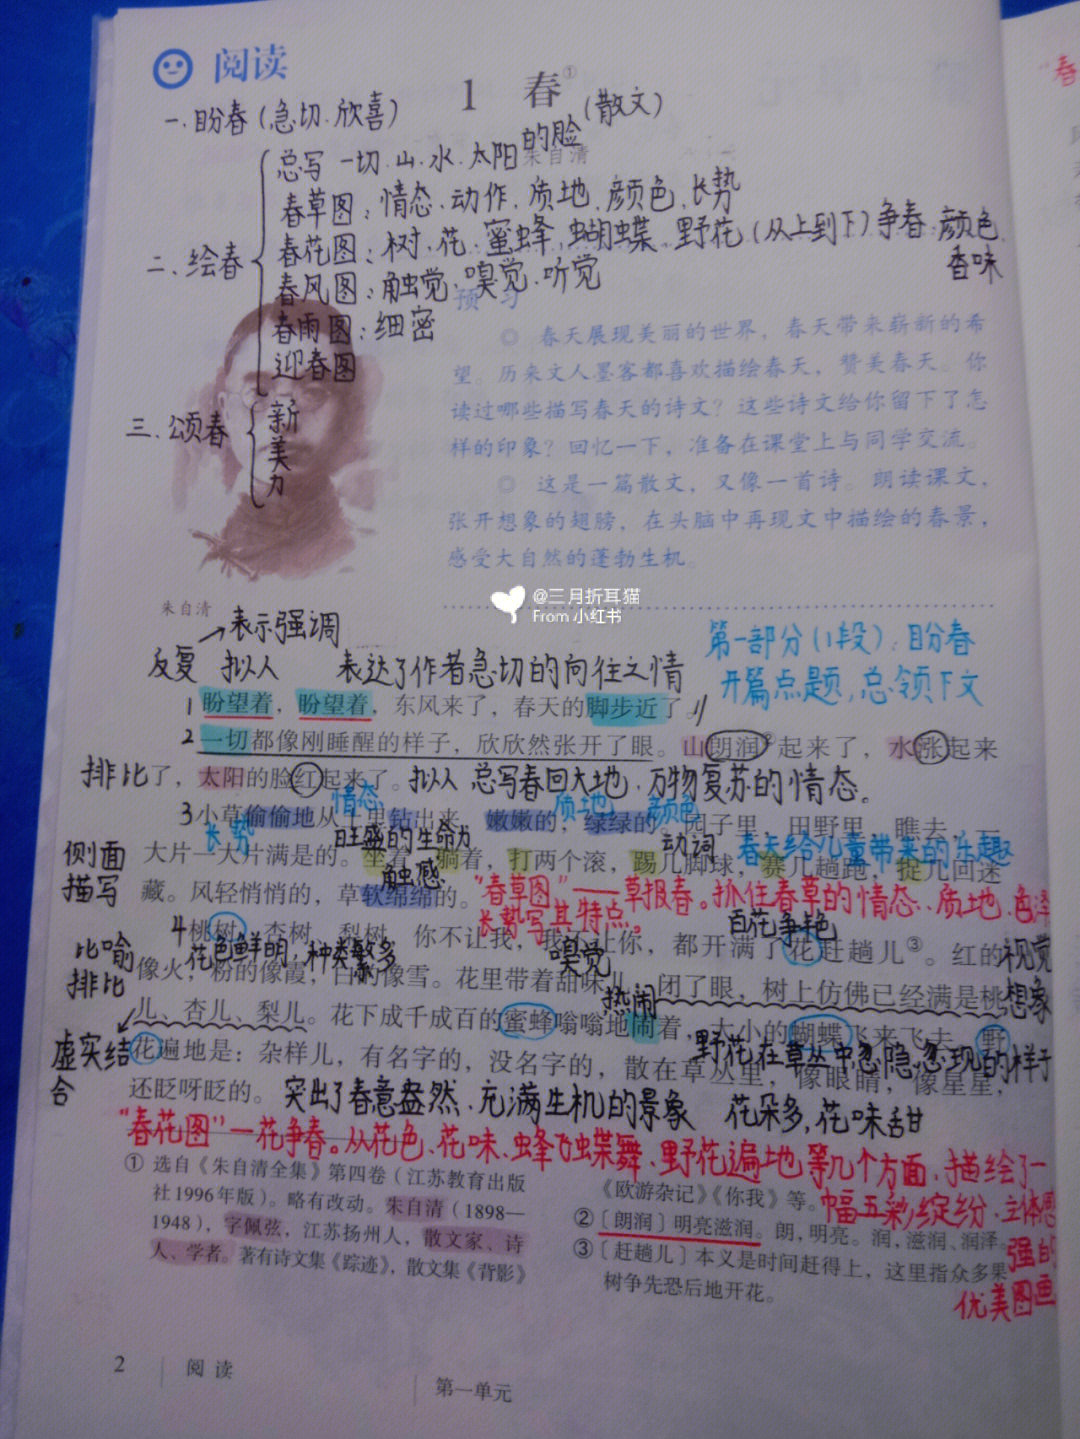 阅读
1 春①
(散文)
一.盼春(急切.欣喜)
朱自清
二、绘春
总写 一切.山.水.太阳的脸
春草图:情态.动作.质地.颜色.长势
春花图:树.花.蜜蜂.蝴蝶.野花(从上到下)争春.颜色.
香味
春风图:触觉.嗅觉.听觉
春雨图:细密
迎春图
三.颂春
新
美
力
预 习
◎ 春天展现美丽的世界，春天带来崭新的希
望。历来文人墨客都喜欢描绘春天，赞美春天。你
读过哪些描写春天的诗文？这些诗文给你留下了怎
样的印象？回忆一下，准备在课堂上与同学交流。
◎ 这是一篇散文，又像一首诗。朗读课文，
张开想象的翅膀，在头脑中再现文中描绘的春景，
感受大自然的蓬勃生机。
@三月折耳猫
From 小红书
朱自清
表示强调
反复 拟人 表达了作者急切的向往之情
第一部分(1段):盼春
开篇点题,总领下文
1 盼望着，盼望着，东风来了，春天的脚步近了。
2 一切都像刚睡醒的样子，欣欣然张开了眼。山朗润②起来了，水涨起来
排比
了，太阳的脸红起来了。
拟人 总写春回大地.万物复苏的情态。
情态 质地 颜色
3 小草偷偷地从土里钻出来，嫩嫩的，绿绿的。园子里，田野里，瞧去，一
长势 旺盛的生命力 动词 春天给儿童带来的乐趣
侧面
描写
大片一大片满是的。坐着，躺着，打两个滚，踢几脚球，赛几趟跑，捉几回迷
触感
藏。风轻悄悄的，草软绵绵的。
"春草图"——草报春。抓住春草的情态.质地.色泽
长势写其特点。
百花争艳
4 桃树、杏树、梨树，你不让我，我不让你，都开满了花赶趟儿③。红的
花色鲜明,种类繁多 嗅觉 视觉
比喻
排比
像火，粉的像霞，白的像雪。花里带着甜味儿，闭了眼，树上仿佛已经满是桃
热闹 想象
儿、杏儿、梨儿。花下成千成百的蜜蜂嗡嗡地闹着，大小的蝴蝶飞来飞去。野
虚实结
合
野花在草丛中忽隐.忽现的样子
花遍地是：杂样儿，有名字的，没名字的，散在草丛里，像眼睛，像星星，
还眨呀眨的。
突出了春意盎然.充满生机的景象 花朵多,花味甜
"春花图"一花争春。从花色、花味、蜂飞蝶舞、野花遍地等几个方面,描绘了一
幅五彩缤纷.立体感
强的
优美图画
① 选自《朱自清全集》第四卷（江苏教育出版
社1996年版）。略有改动。朱自清（1898—
1948），字佩弦，江苏扬州人，散文家、诗
人、学者。著有诗文集《踪迹》，散文集《背影》
《欧游杂记》《你我》等。
②〔朗润〕明亮滋润。朗，明亮。润，滋润、润泽。
③〔赶趟儿〕本义是时间赶得上，这里指众多果
树争先恐后地开花。
2 阅 读
第一单元